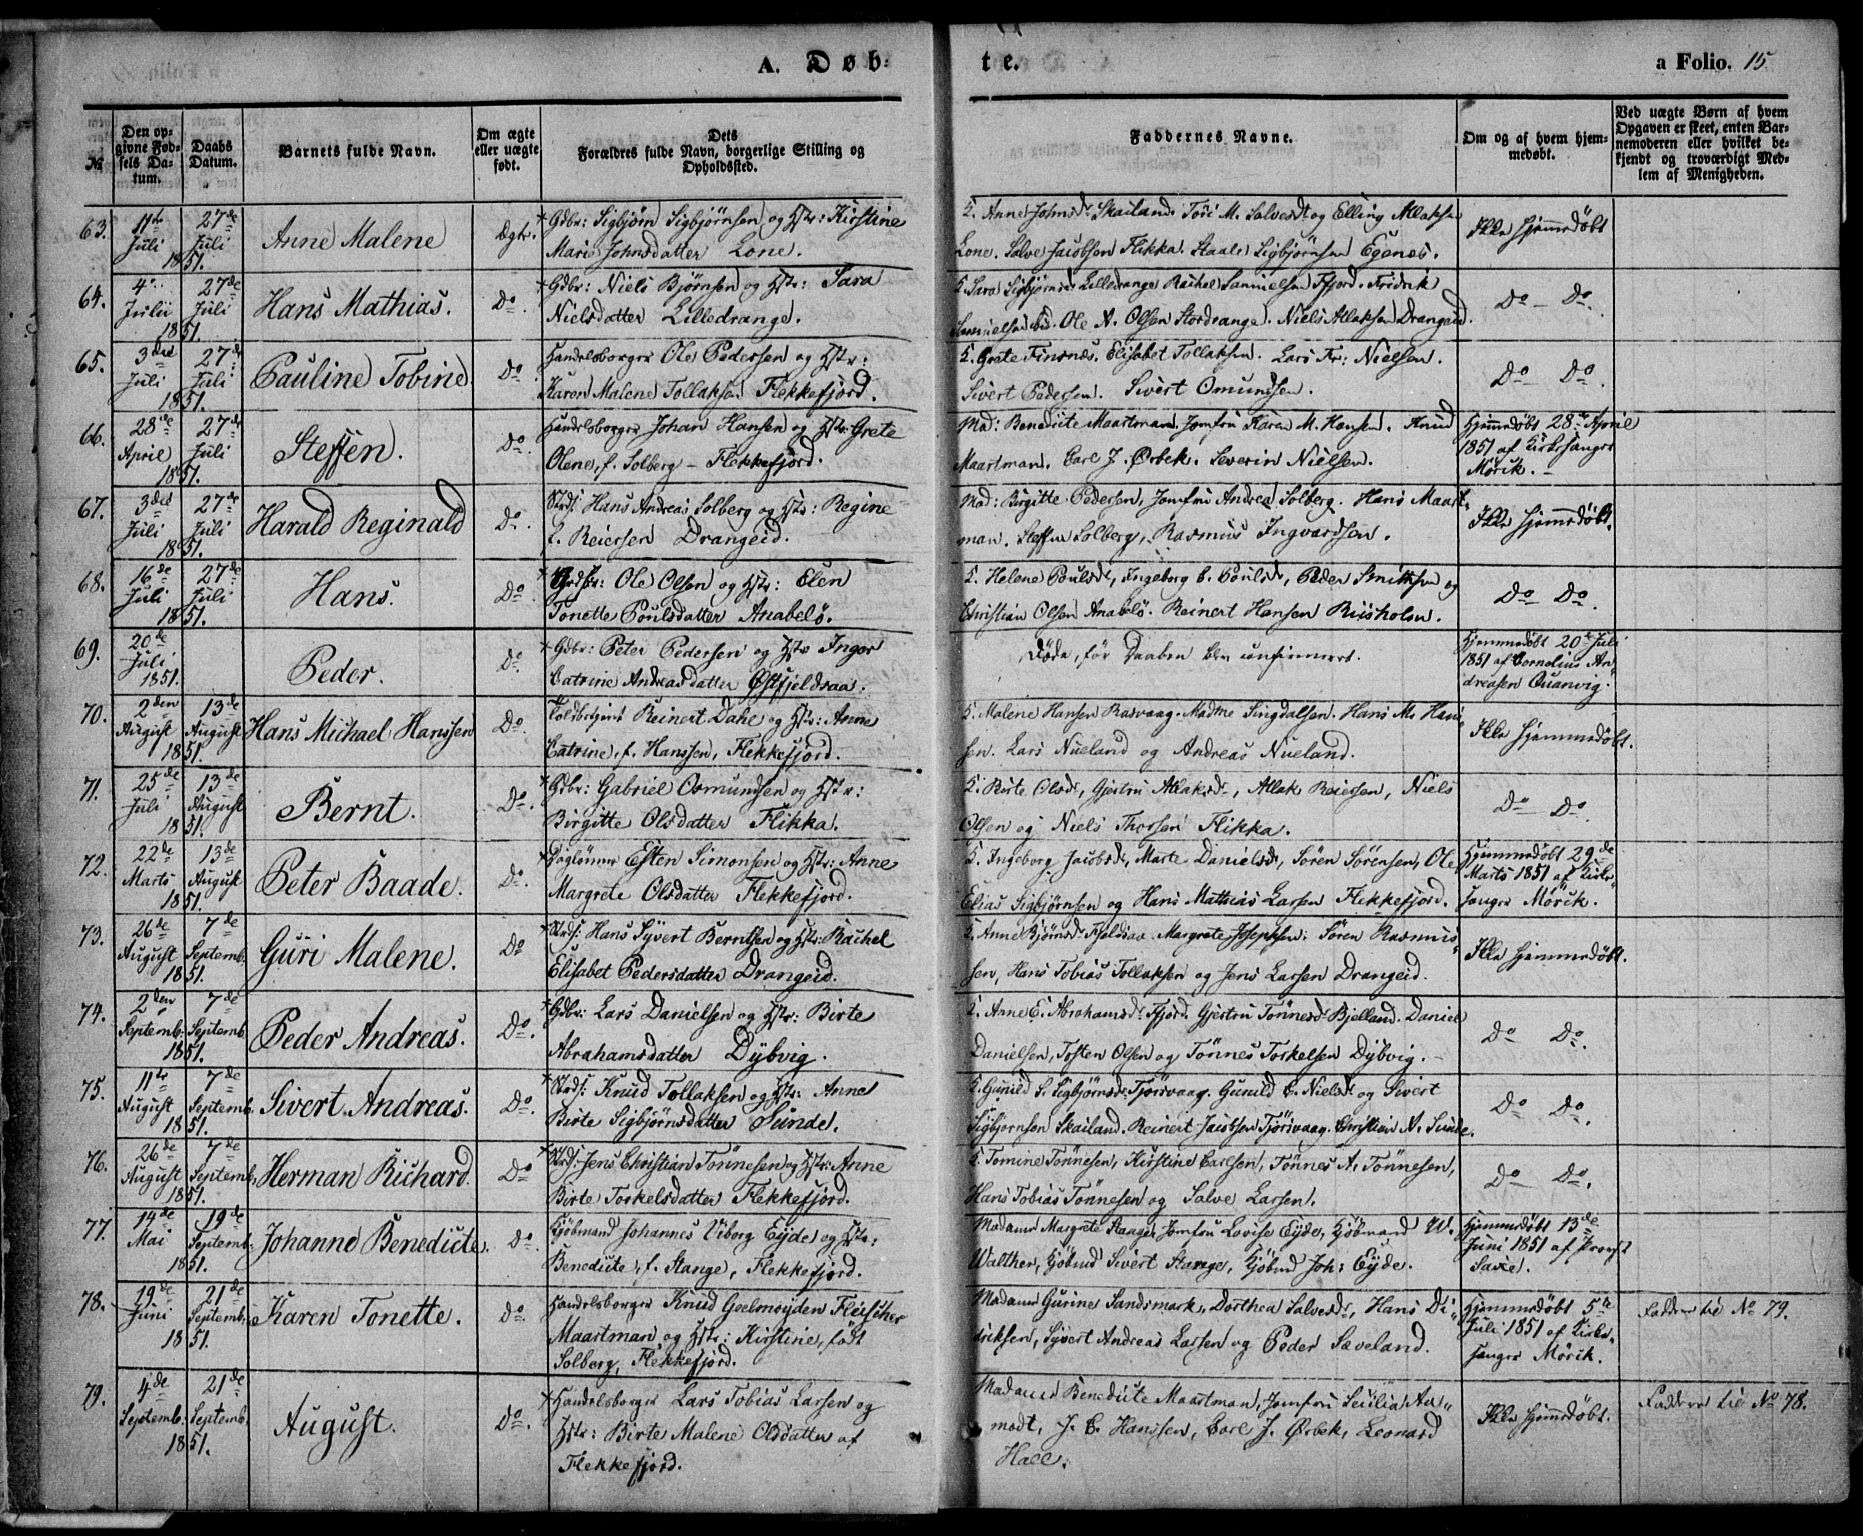 A. Døb-
te.
a Folio. 15
№
Den op-
givne Fød-
sels Da-
tum.
Daabs
Datum.
Barnets fulde Navn.
Om ægte
eller uægte
født.
Dets
Forældres fulde Navn, borgerlige Stilling og
Opholdssted.
Faddernes Navne.
Om og af hvem hjem-
medøbt.
Ved uægte Børn af hvem
Opgaven er skeet, enten Bar-
nemoderen eller hvilket be-
kjendt og troværdigt Med-
lem af Menigheden.
63.
11te Juli 1851.
27de Juli
Anne Malene
Ægte.
Gdbr: Sigbjørn Sigbjørnsen og Hstr: Kirstine
Marie Johnsdatter Lone.
K. Anne Johnsd. Skailand. Tori M. Salvesdt og Elling Atlaksen
Lone. Salve Jacobsen Flikka. Staale Sigbjørnsen Egenes.
Ikke hjemmedøbt
64.
4de Julii 1851.
27de Juli
Hans Mathias.
Do.
Gdbr: Niels Bjørnsen og Hstr: Sara
Nielsdatter Lilledrange.
K. Sara Sigbjørnsd. Lilledrange Rachel Samuelsen Fjord. Fridrik
Samuelsen ibid. Ole N. Olsen Stordrange. Niels Atlaksen Drangeid.
Do – Do.
65.
3die Juli 1851.
27de Juli
Pauline Tobine
Do.
Handelsborger Ole Pedersen og Hstr:
Karen Malene Tollaksen Flekkefjord.
K. Grete Finsnes. Elisabet Tollaksen. Lars Fr: Nielsen.
Sivert Pedersen. Sivert Omundsen.
Do – Do.
66.
28de April 1851.
27de Juli
Steffen.
Do.
Handelsborger Johan Hansen og Hstr: Grete
Olene, f. Solberg – Flekkefjord.
Mad: Benedicte Maartman. Jomfru Karen M. Hansen. Knud
Maartman. Carl J. Ørbek. Severin Nielsen.
Hjemmedøbt 28de April
1851 af Kirkesanger
Mörik. –
67.
3die Juli 1851.
27de Juli
Harald Reginald
Do.
Strds: Hans Andreas Solberg og Hstr: Regine
f. Reiersen Drangeid.
Mad: Birgitte Pedersen, Jomfru Andrea Solberg. Hans Maart-
man. Steffen Solberg, Rasmus Ingvardsen.
Ikke hjemmedøbt.
68.
16de Juli 1851.
27de Juli
Hans.
Do.
Gdbr: Ole Olsen og Hstr: Elen
Tonette Poulsdatter Anabelø.
K. Helene Poulsd, Ingeborg C. Poulsd, Peder Smithsen og
Christian Olsen Anabelö. Reinert Hansen Riisholm.
Do Do.
69.
20de Juli 1851.
Peder.
Do.
Gdbr: Peter Pedersen og Hstr Inger
Catrine Andreasdatter Østfjeldsaa.
Døde, før Daaben blev confirmeret.
Hjemmedøbt 20de Juli
1851 af Cornelius An-
dreasen Quanvig.
70.
2den August 1851.
13de August
Hans Michael Hanssen
Do.
Toldbetjent Reinert Dahl og Hstr: Anne
Catrine, f. Hanssen, Flekkefjord.
K. Malene Hansen Rasvaag. Madme Singdalsen. Hans M. Han-
sen. Lars Nueland og Andreas Nueland.
Ikke hjemmedøbt.
71.
25de Juli 1851.
13de August
Bernt.
Do.
Gdbr: Gabriel Osmundsen og Hstr:
Birgitte Olsdatter Flikka.
K. Birte Olsd, Gjertru Atlaksd, Atlak Reiersen, Niels
Olsen og Niels Thorsen Flikka.
Do – Do.
72.
22de Marts 1851.
13de August
Peter Baade.
Do.
Daglønner Esten Simonsen og Hstr: Anne
Margrete Olsdatter Flekkefjord.
K. Ingeborg Jacobsd, Marte Danielsd, Sören Sörensen, Ole
Elias Sigbjørnsen og Hans Mathias Larsen Flekkefjord.
Hjemmedøbt 29de
Marts 1851 af Kirke-
sanger Mörik.
73.
26de August 1851.
7de Septemb.
Guri Malene.
Do
Strds: Hans Syvert Berntsen og Hstr: Rachel
Elisabet Pedersdatter Drangeid.
K. Anne Bjørnsd. Fjeldsaa. Margrete Josephsen. Sören Rasmus-
sen, Hans Tobias Tollaksen og Jens Larsen Drangeid.
Ikke hjemmedøbt.
74.
2den Septemb. 1851.
7de Septemb.
Peder Andreas.
Do.
Gdbr: Lars Danielsen og Hstr: Birte
Abrahamsdatter Dybvig.
K. Anne E. Abrahamsd. Fjord. Gjertru Tönnesd. Bjelland. Daniel
Danielsen, Tosten Olsen og Tönnes Torkelsen Dybvig. –
Do Do.
75.
11te August 1851.
7de Septemb.
Sivert Andreas.
Do.
Strds: Knud Tollaksen og Hstr: Anne
Birte Sigbjørnsdatter Sunde.
K. Gunild S. Sigbjørnsd. Tjörsvaag. Gunild C. Nielsd. og Sivert
Sigbjørnsen Skailand. Reinert Jacobsen Tjörsvaag. Christian A. Sunde.
Do Do.
76.
26de August 1851.
7de Septemb.
Herman Richard.
Do
Strds: Jens Christian Tönnesen og Hstr: Anne
Birte Torkelsdatter Flekkefjord.
K. Tomine Tönnesen, Kirstine Carlsen, Tönnes A. Tönnesen,
Hans Tobias Tönnesen og Salve Larsen.
Do Do.
77.
14de Mai 1851.
19de Septemb.
Johanne Benedicte.
Do.
Kjøbmand Johannes Viborg Eyde og Hstr:
Benedicte, f. Stange, Flekkefjord.
Madame Margrete Stange, Jomfru Lovise Eyde, Kjøbmand W.
Walther, Kjøbmd Sivert Stange, Kjøbmd Joh: Eyde.
Hjemmedøbt 13de
Juni 1851 af Provst
Saxe.
78.
19de Juni 1851.
21de Septemb.
Karen Tonette.
Do
Handelsborger Knud Geelmøyden Fleischer
Maartman og Hstr: Kirstine, født
Solberg, Flekkefjord.
Madame Gurine Sandsmark, Dorthea Salvesd, Hans Di-
driksen, Syvert Andreas Larsen og Peder Sæveland.
Hjemmedøbt 5te
Juli 1851 af Kirke-
sanger Mörik.
Faddere til No 79.
79.
4de Septemb. 1851.
21de Septemb.
August.
Do.
Handelsborger Lars Tobias Larsen og
Hstr: Birte Malene Olsdatter af
Flekkefjord.
Madame Benedicte Maartman, Jomfru Seselia Aa-
modt, J. C. Hanssen, Carl J. Ørbek, Leonard
Hall.
Ikke hjemmedøbt.
Faddere til No 78.